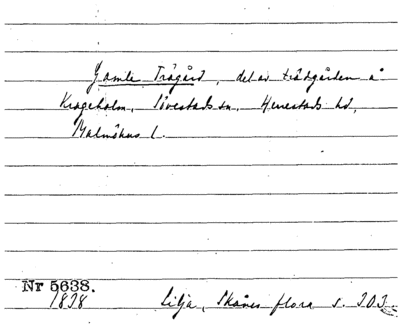 Gamle Trägård, del av trädgården å
Krageholm, Sövestads sn, Herrestads hd,
Malmöhus l.
Nr 5638.
1838 Lilja, Skånes flora s. 303.